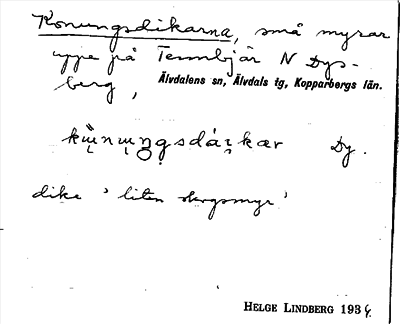 Konungsdikarna, små myrar
uppe på Tennbjär N Dys-
berg,
Älvdalens sn, Älvdals tg, Kopparbergs län.
Dy.
dike 'liten skogsmyr'
HELGE LINDBERG 1934.